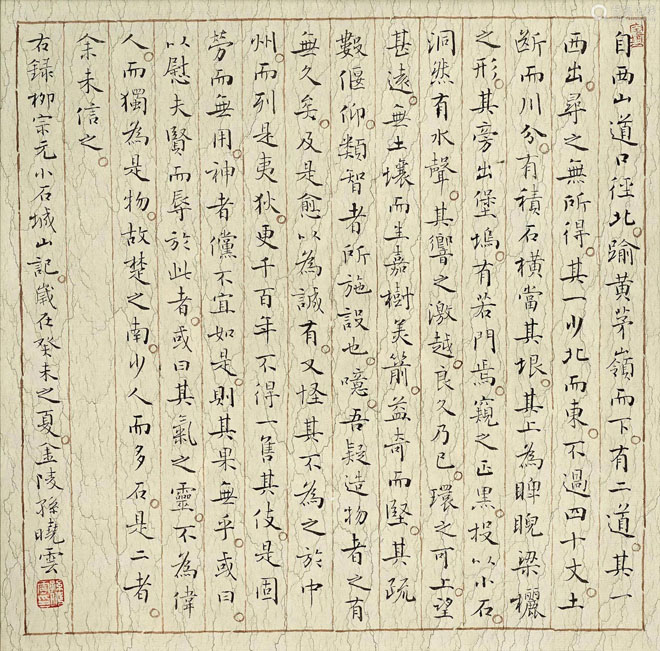 自西山道口徑北踰黄茅嶺而下有二道其一
西出尋之無所得其一少北而東不過四十丈土
斷而川分有積石橫當其垠其上為睥睨梁欐
之形其旁出堡塢有若門焉窺之正黑投以小石
洞然有水聲其響之激越良久乃已環之可上望
甚遠無土壤而生嘉樹美箭益奇而堅其疏
數偃仰類智者所施設也噫吾疑造物者之有
無久矣及是愈以為誠有又怪其不為之於中
州而列是夷狄更千百年不得一售其伎是固
勞而無用神者儻不宜如是則其果無乎或曰
以慰夫賢而辱於此者或曰其氣之靈不為偉
人而獨為是物故楚之南少人而多石是二者
余未信之
右録柳宗元小石城山記歲在癸未之夏金陵孫曉雲